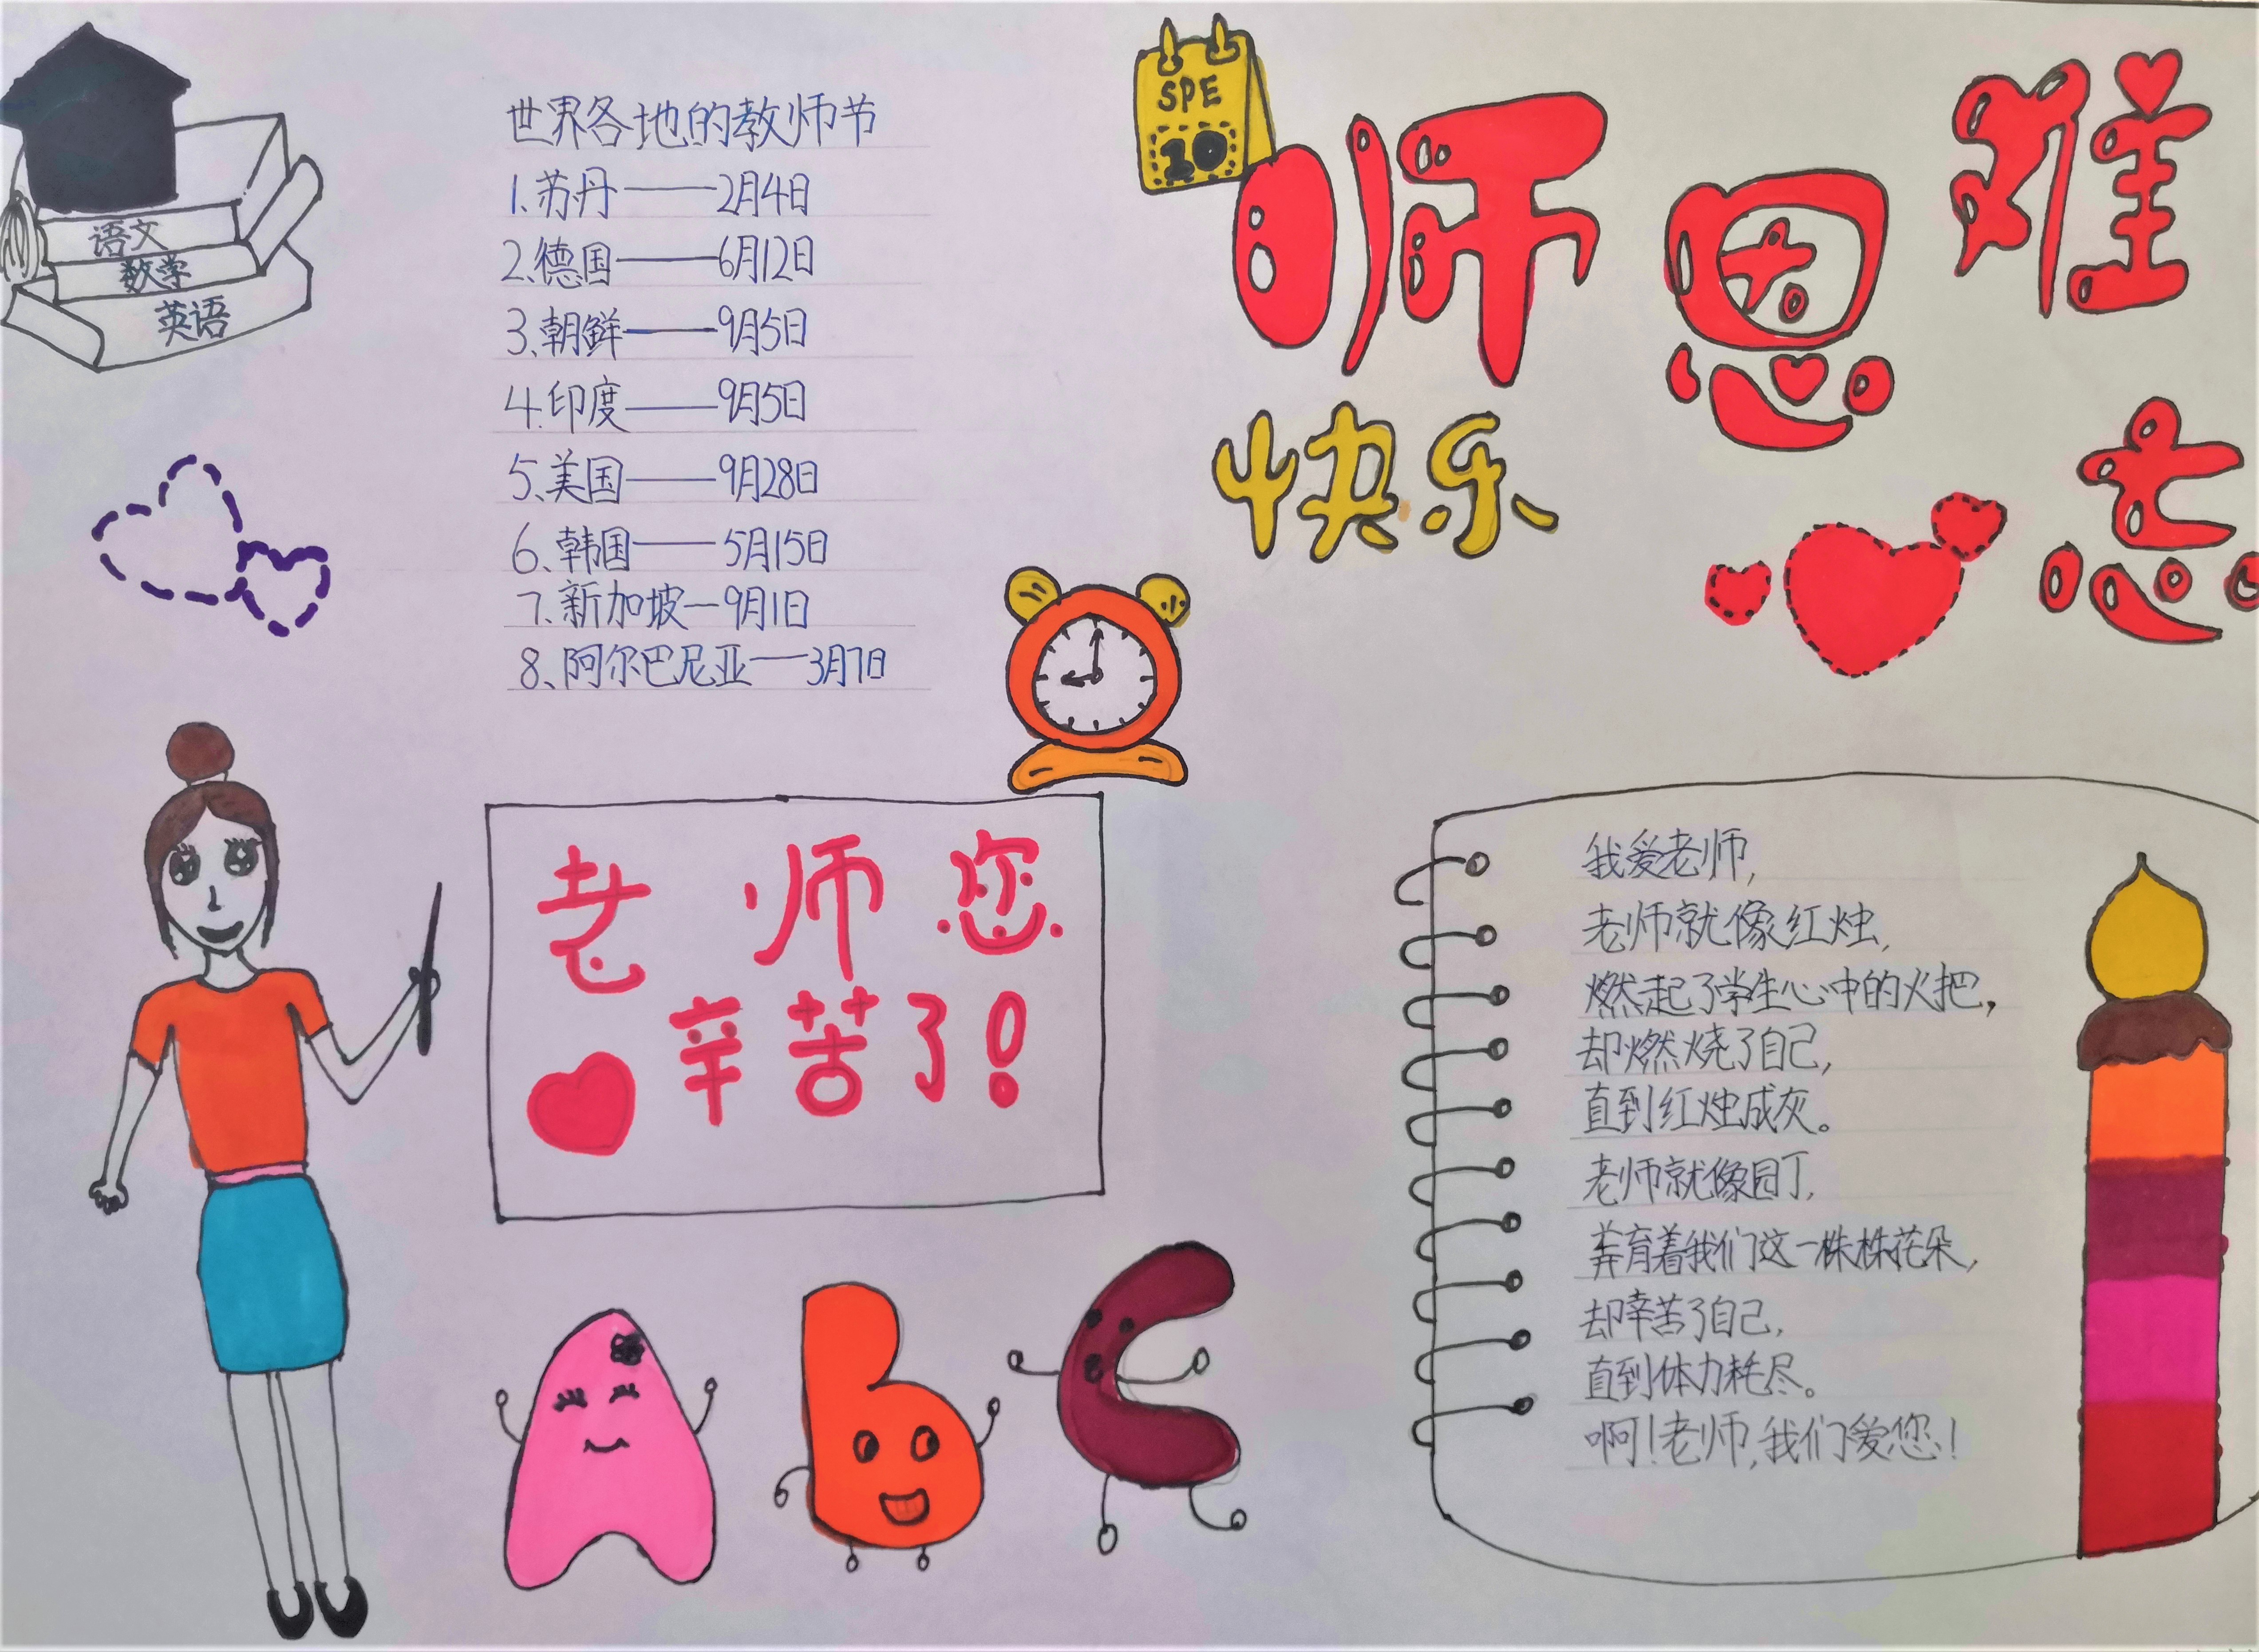 语文
数学
英语
世界各地的教师节
1.苏丹——2月4日
2.德国——6月12日
3.朝鲜——9月5日
4.印度——9月5日
5.美国——9月28日
6.韩国——5月15日
7.新加坡—9月1日
8.阿尔巴尼亚—3月7日
SPE
10
师恩难忘
快乐
老师您
辛苦了!
我爱老师,
老师就像红烛,
燃起了学生心中的火把,
却燃烧了自己,
直到红烛成灰。
老师就像园丁,
养育着我们这一株株花朵,
却辛苦了自己,
直到体力耗尽。
啊!老师,我们爱您!
A b C